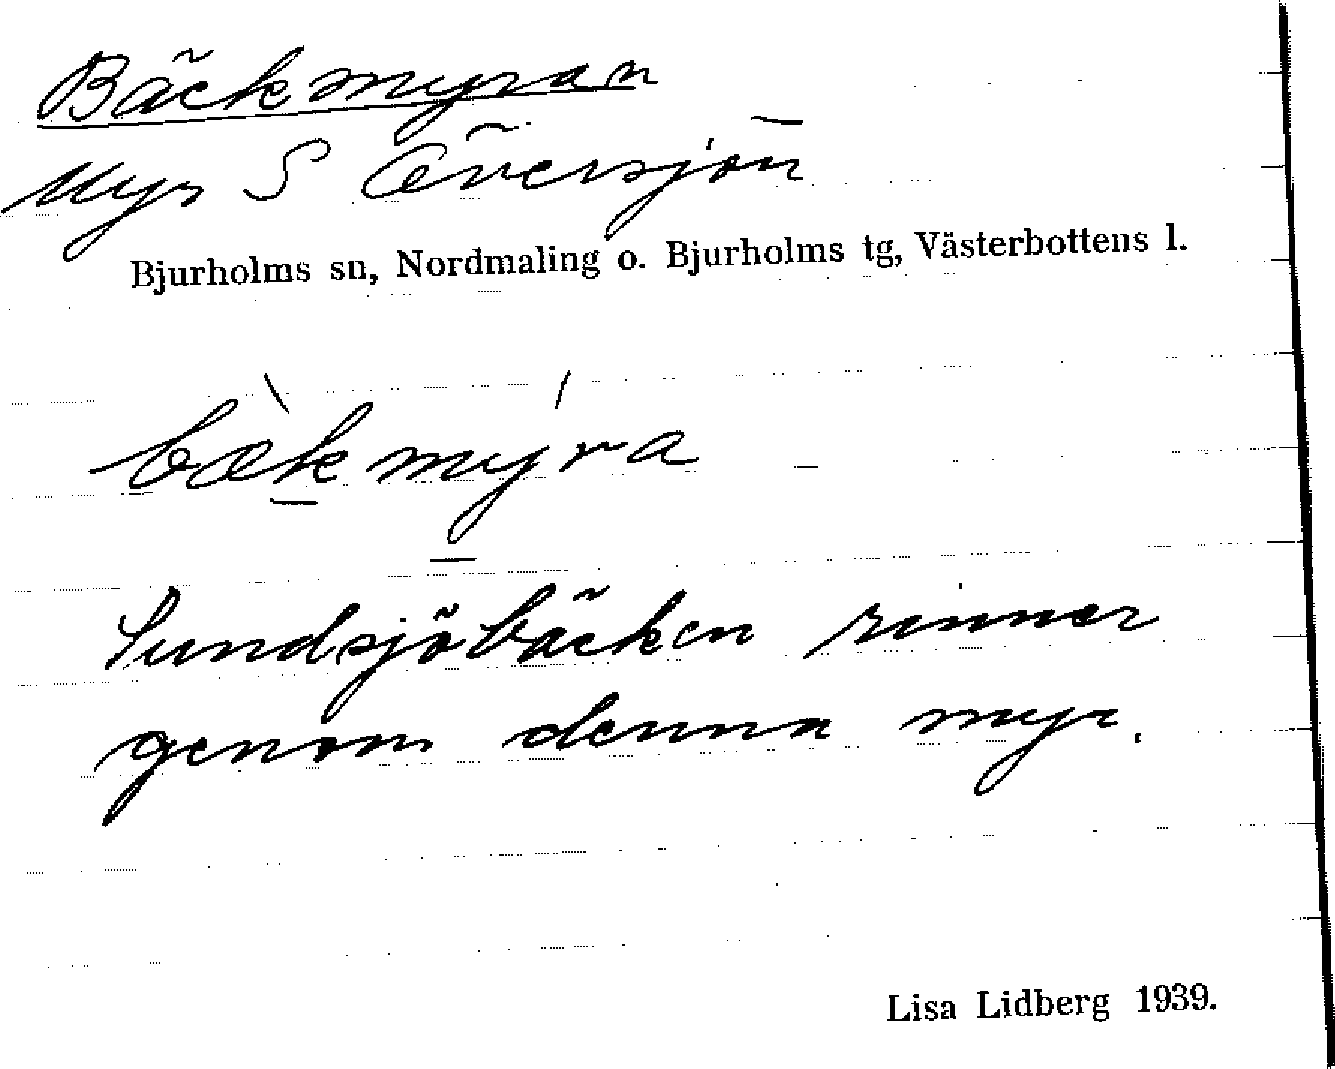 Bäckmyran
Myr S Översjön
Bjurholms sn, Nordmaling o. Bjurholms tg, Västerbottens l.
bæ̀kmýra
Sundsjöbäcken rinner
genom denna myr.
Lisa Lidberg 1939.